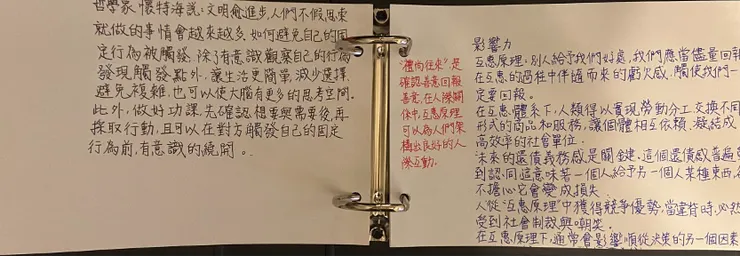 哲學家懷特海說：文明愈進步，人們不假思索
就做的事情會越來越多。如何避免自己的固
定行為被觸發，除了有意識觀察自己的行為
發現觸發點外，讓生活更簡單，減少選擇
避免複雜，也可以使大腦有更多的思考空間。
此外，做好功課，先確認想要與需要後，再
採取行動，且可以在對方觸發自己的固定
行為前，有意識的繞開。
"禮尚往來"是
確認善意回報
善意，在人際關
係中，互惠原理
可以為人們架
構出良好的人
際互動。
影響力
互惠原理，別人給予我們好處，我們應當儘量回報
在互惠的過程中伴隨而來的虧欠感，觸使我們一
定要回報。
在互惠体系下，人類得以實現勞動分工，交換不同
形式的商品和服務，讓個體相互依賴，凝結成
高效率的社會單位。
未來的還債義務感是關鍵，這個還債感普遍
到認同這意味著一個人給予另一個人某種東西，
不擔心它會變成損失
人從"互惠原理"中獲得競爭優勢，當違背時，必然
受到社會制裁與嘲笑。
在互惠原理下，通常會影響順從決策的另一個因素